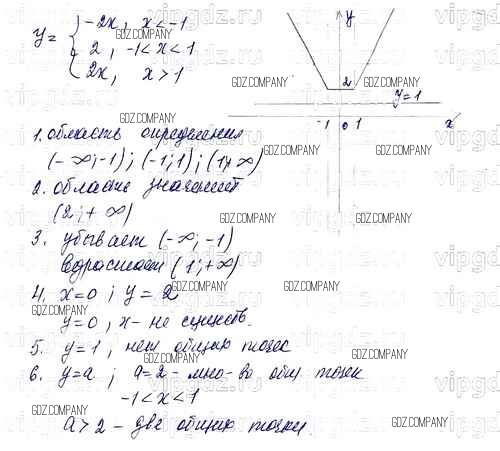 y = { -2x, x < -1
2, -1 < x < 1
2x, x > 1
y
2
y=1
-1 0 1 x
1. область определения
(-∞; -1); (-1; 1); (1; +∞)
2. область значений
(2; +∞)
3. убывает (-∞; -1)
возрастает (1; +∞)
4. x=0; y=2
y=0, x - не существ.
5. y=1, нет общих точек
6. y=a; a=2 - мно-во общ точек
-1 < x < 1
a > 2 - две общих точки
GDZ.COMPANY
vipgdz.ru